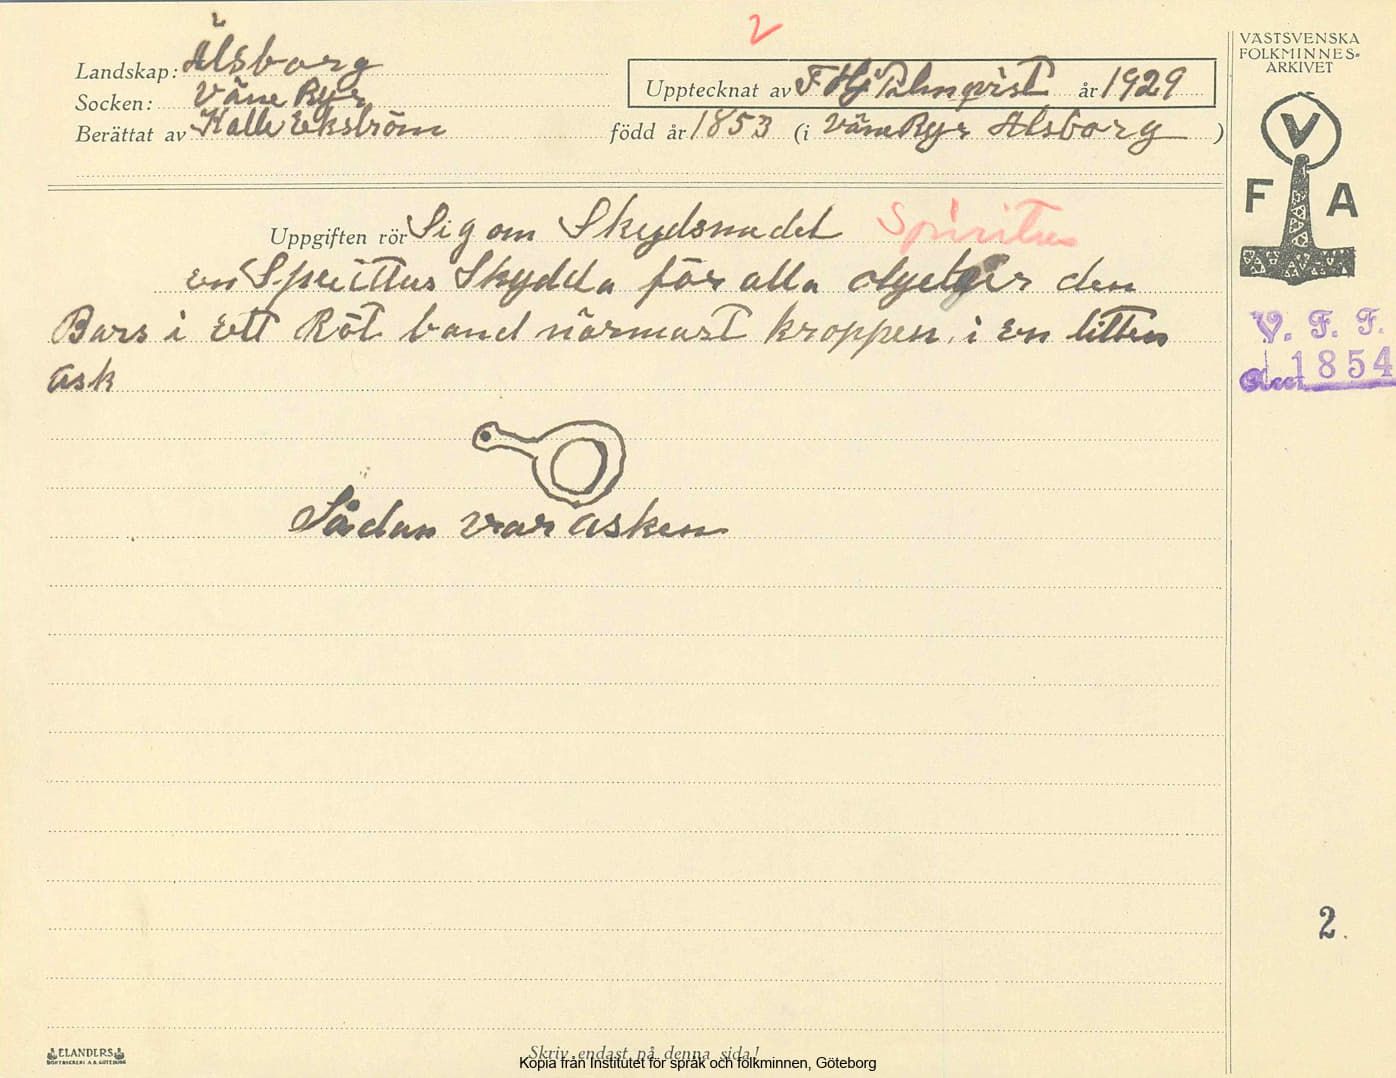 2
VÄSTSVENSKA
FOLKMINNES-
ARKIVET
Landskap: Älsborg
Upptecknat av F Hj Palmqvist år 1929
Socken: Väne Ryr
Berättat av Kalle Ekström född år 1853 (i Väne Ryr Älsborg)
V
F A
Uppgiften rör Sig om Skydsmedel Spiritus
en Spirittus Skydda för alla olyckor den
Bars i Ett Röt band närmast kroppen i en litten
ask
V. F. F.
1854
Sådan var asken
2.
ELANDERS
BOKTRYCKERI A.B. GÖTEBORG
Skriv endast på denna sida!
Kopia från Institutet för språk och folkminnen, Göteborg